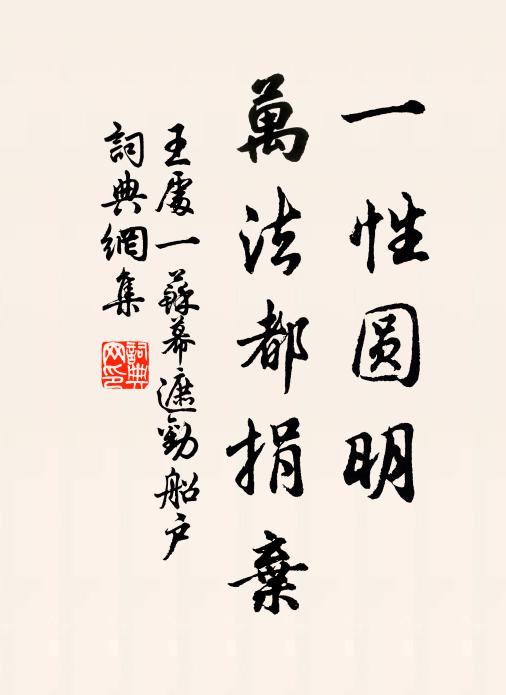 一性圆明
萬法都捐棄
王處一蘇幕遮勸船户
詞典網集
詞典网印